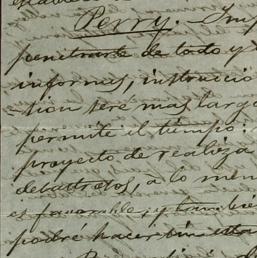 Perry. Imp
penetrarte de todo y
informes, instruccio
tion seré mas largo
permite el tiempo:
proyecto de realiza
de tratados, á lo men
es favorable; y tambié
podré hacer sin